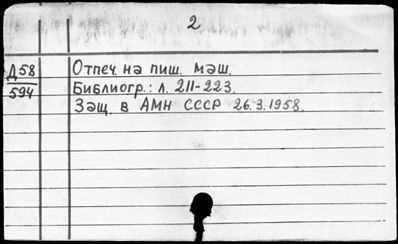 2
Д58 Отпеч. на пиш. маш.
594 Библиогр.: л. 211-223.
Защ. в АМН СССР 26.3.1958.